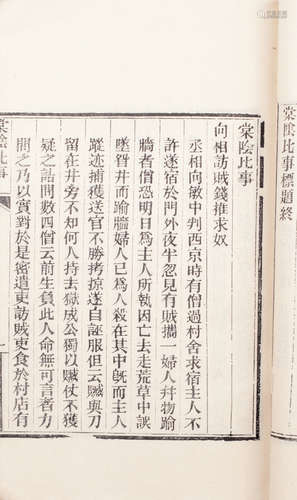 棠陰比事標題終
棠陰比事
向相訪賊錢推求奴
丞相向敏中判西京時有僧過村舍求宿主人不
許遂宿於門外夜半忽見有賊攜一婦人并物踰
牆者僧恐明日爲主人所執因亡去走荒草中誤
墜眢井而踰牆婦人已爲人殺在其中旣而主人
蹤迹捕獲送官不勝拷掠遂自誣服但云贓與刀
留在井旁不知何人持去獄成公獨以贓仗不獲
疑之詰問數四僧云前生負此人命無可言者力
問之乃以實對於是密遣吏訪賊吏食於村店有
棠陰比事